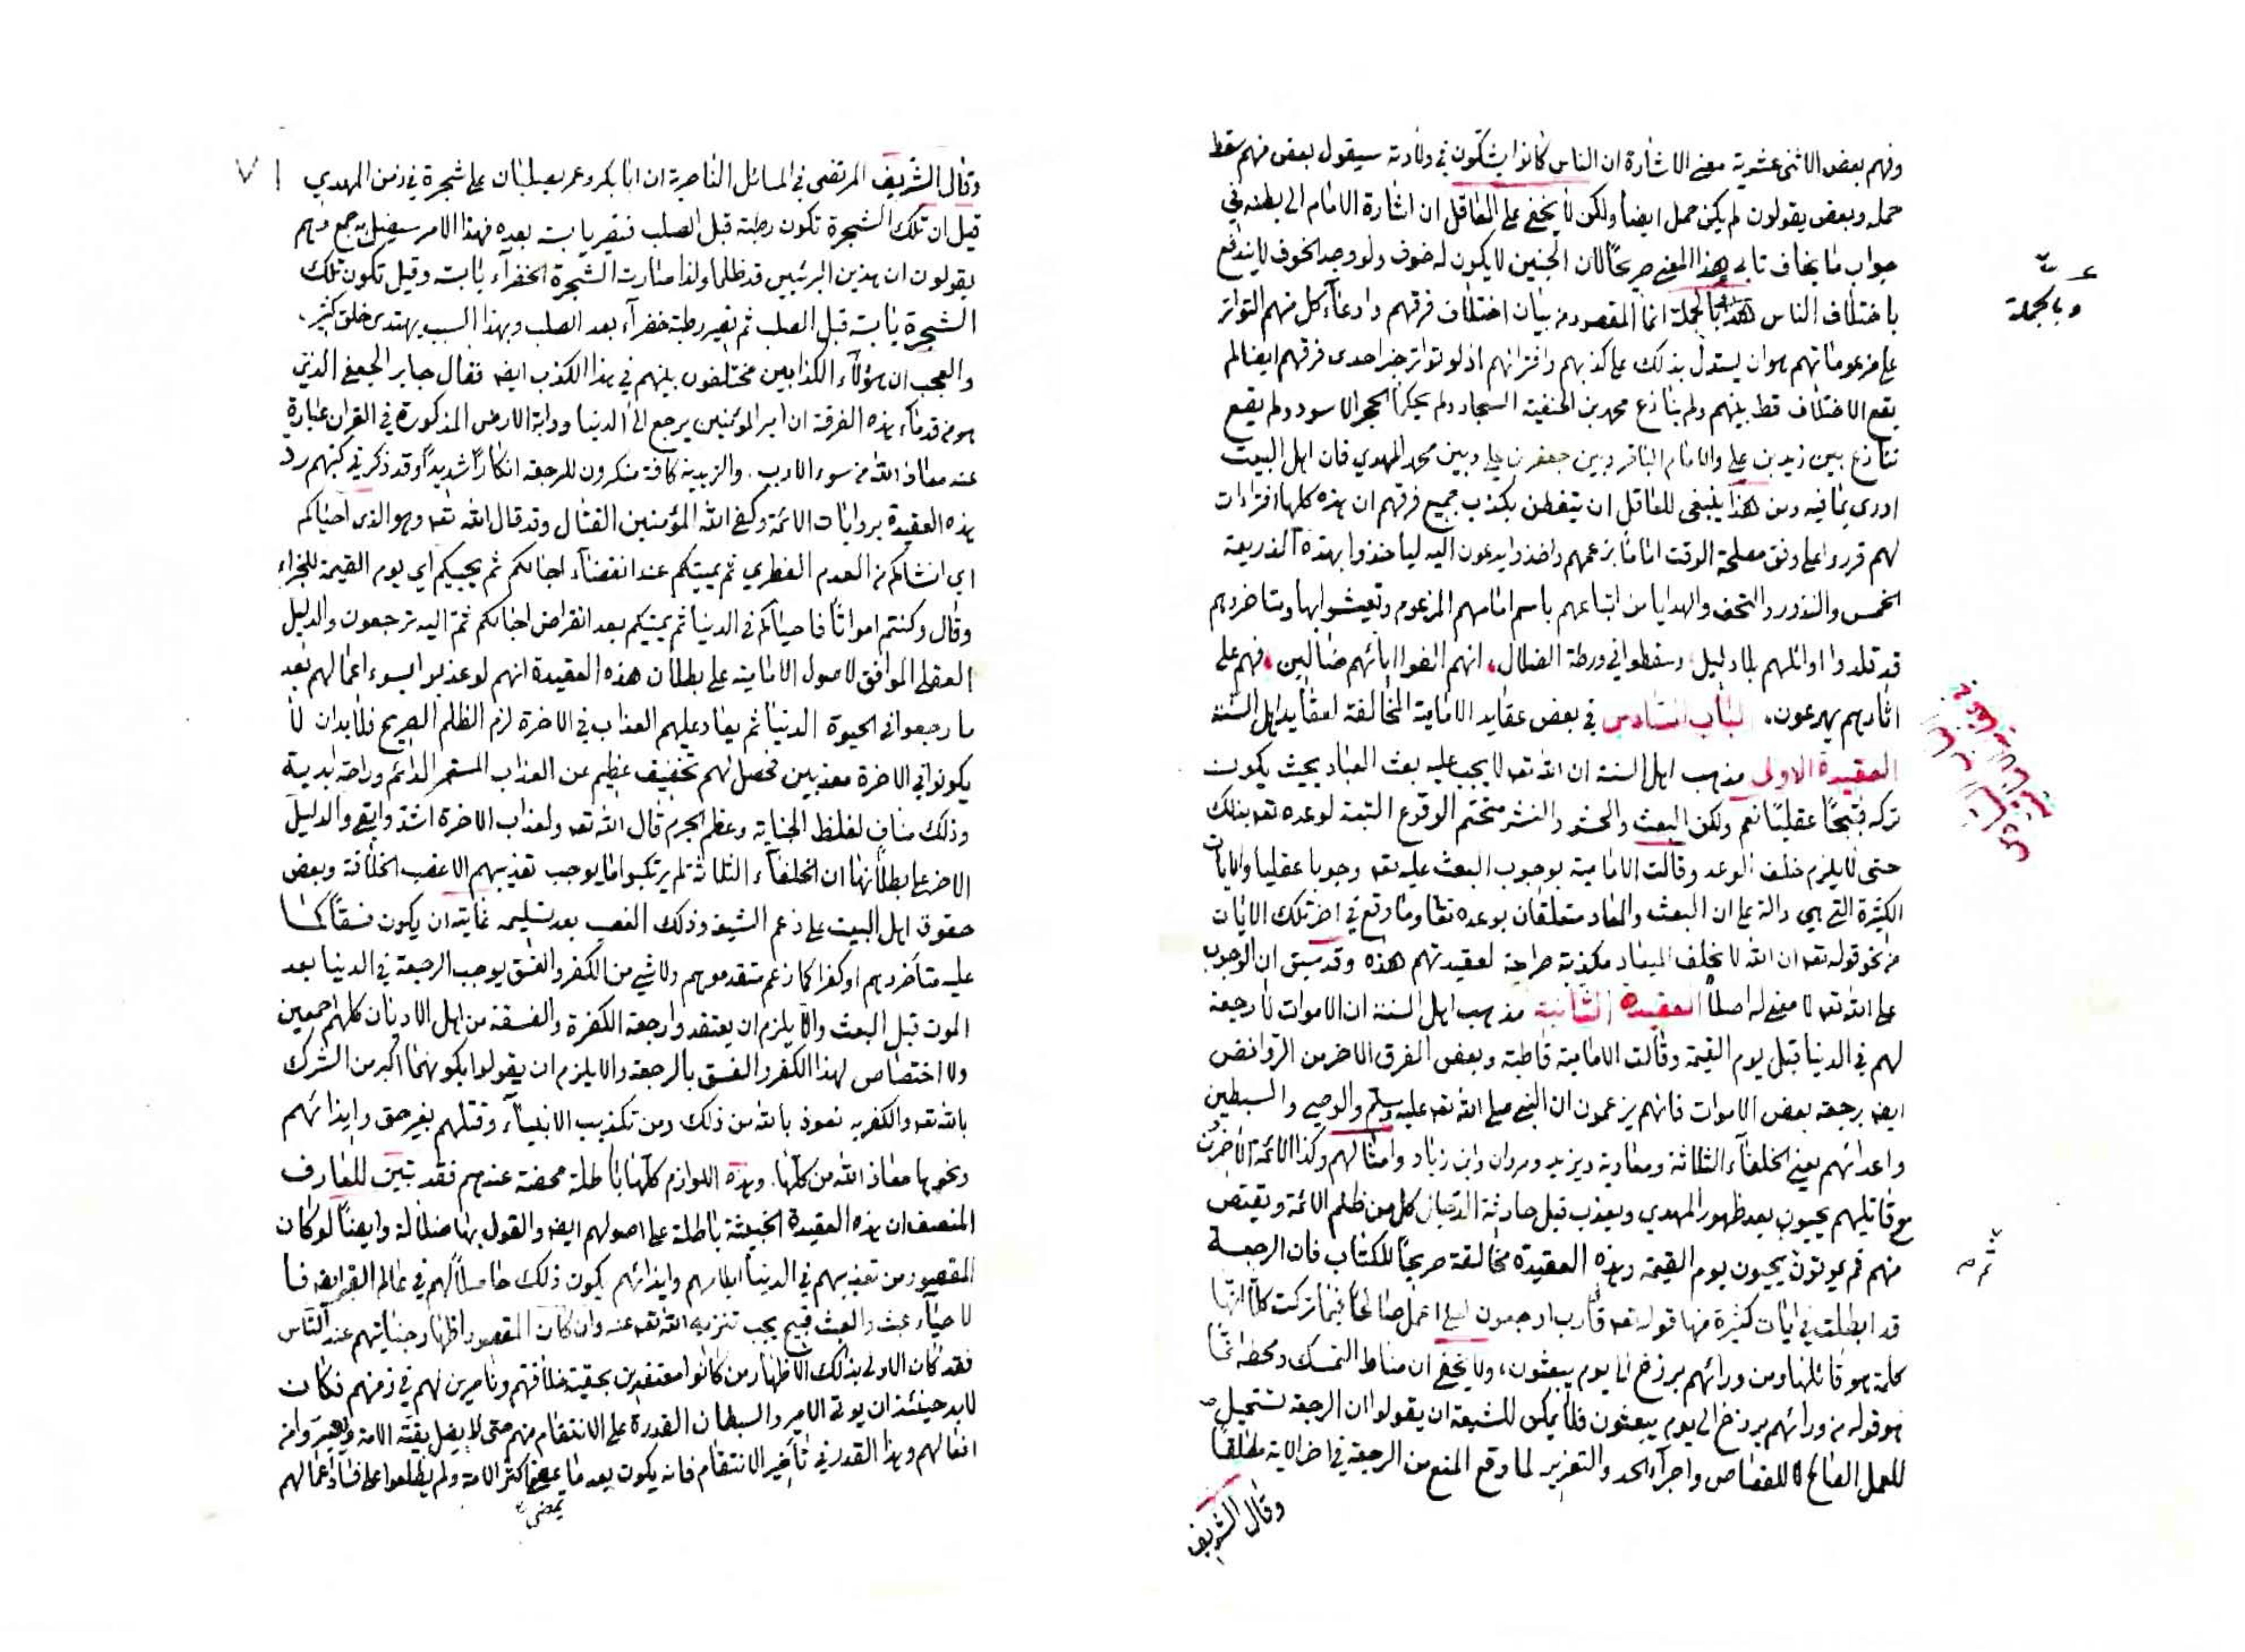 وفهم بعض الاثنى عشرية معنى الاشارة ان الناس كانوا يشكون في ولادته سيقول بعض منهم سقط
حمله وبعض يقولون لم يكن حمل ايضا ولكن لا يخفى على العاقل ان اشارة الامام الى بطنه في
جواب ما يخاف تابى هذا المعنى صريحا لان الجنين لا يكون له خوف ولو وجد الخوف لا يندفع
باختلاف الناس هذا بالجملة انما المقصود من بيان اختلاف فرقهم وادعاء كل منهم التواتر
على مزعوماتهم هو ان يستدل بذلك على كذبهم وافترائهم اذ لو تواتر خبر احدى فرقهم ايضا لم
يقع الاختلاف قط بينهم ولم ينازع محمد بن الحنفية السجاد ولم يحكما الحجر الاسود ولم يقع
تنازع بين زيد بن على والامام الباقر وبين جعفر بن على وبين محمد المهدي فان اهل البيت
ادرى بما فيه ومن هذا ينبغى للعاقل ان يتفطن بكذب جميع فرقهم ان هذه كلها افتراءات
لهم قرروا على وفق مصلحة الوقت اماما بزعمهم واخذوا يدعون اليه لياخذوا بهذه الذريعة
الخمس والنذور والتحف والهدايا من اتباعهم باسم امامهم المزعوم وتعيشوا بها ومتاخروهم
قد قلدوا اوائلهم بلا دليل وسقطوا في ورطة الضلال انهم الفوا ابائهم ضالين فهم على
اثارهم يهرعون الباب السادس في بعض عقايد الامامية المخالفة لعقايد اهل السنة
العقيدة الاولى مذهب اهل السنة ان الله تعه لا يجب عليه بعث العباد بحيث يكون
تركه قبيحا عقليا نعم ولكن البعث والحشر والنشر متحتم الوقوع البتة لوعده تعه بذلك
حتى لا يلزم خلف الوعد وقالت الامامية بوجوب البعث عليه تعه وجوبا عقليا والايات
الكثيرة التى هي دالة على ان البعث والمعاد متعلقان بوعده تعا وما وقع في اخر تلك الايات
من نحو قوله تعه ان الله لا يخلف الميعاد مكذبة صراحة لعقيدتهم هذه وقد سبق ان الوجوب
على الله تعه لا معنى له اصلا العقيدة الثانية مذهب اهل السنة ان الاموات لا رجعة
لهم في الدنيا قبل يوم القيمة وقالت الامامية قاطبة وبعض الفرق الاخر من الروافض
ايضه برجعة بعض الاموات فانهم يزعمون ان النبي صلى الله تعه عليه وسلم والوصي والسبطين
واعدائهم يعني الخلفاء الثلاثة ومعاوية ويزيد ومروان وابن زياد وامثالهم وكذا الائمة الاخرون
مع قاتليهم يحيون بعد ظهور المهدي ويعذب قبل حادثة الدجال كل من ظلم الائمة ويقتص
منهم ثم يموتون يحيون يوم القيمة وهذه العقيدة مخالفة صريحا للكتاب فان الرجعة
قد ابطلت في ايات كثيرة منها قوله تعه قال رب ارجعون لعلى اعمل صالحا فيما تركت كلا انها
كلمة هو قائلها ومن ورائهم برزخ الى يوم يبعثون ولا يخفى ان مناط التمسك ومحط
هو قوله من ورائهم برزخ الى يوم يبعثون فلا يمكن للشيعة ان يقولوا ان الرجعة تستحيل
للعمل الصالح لا للقصاص واجراء الحد والتعزير لما وقع المنع من الرجعة في اخر الاية مطلقا
وقال الشريف
وبالجملة
وقال الشريف المرتضى في المسائل الناصرية ان ابا بكر وعمر يصلبان على شجرة في زمن المهدي
قيل ان تلك الشجرة تكون رطبة قبل الصلب فتصير يابسة بعده فهذا الامر سيضل به جمع فهم
يقولون ان هذين البرئيين قد ظلما ولذا صارت الشجرة الخضراء يابسة وقيل تكون تلك
الشجرة يابسة قبل الصلب ثم تصير رطبة خضراء بعد الصلب وبهذا السبب يهتدى خلق كثير
والعجب ان هؤلاء الكذابين مختلفون بينهم في هذا الكذب ايضه فقال جابر الجعفي الذي
هو من قدماء هذه الفرقة ان امير المؤمنين يرجع الى الدنيا ودابة الارض المذكورة في القران عبارة
عنه معاذ الله من سوء الادب والزيدية كافة منكرون للرجعة انكارا شديدا وقد ذكر في كتبهم رد
هذه العقيدة بروايات الائمة وكفى الله المؤمنين القتال وقد قال الله تعه وهو الذى احياكم
اي انشاكم من العدم الفطري ثم يميتكم عند انقضاء اجالكم ثم يحييكم اي يوم القيمة للجزاء
وقال وكنتم امواتا فاحياكم في الدنيا ثم يميتكم بعد انقراض اجالكم ثم اليه ترجعون والدليل
العقلي الموافق لاصول الامامية على بطلان هذه العقيدة انهم لو عذبوا بسوء اعمالهم بعد
ما رجعوا في الحيوة الدنيا ثم يعاد عليهم العذاب في الاخرة لزم الظلم الصريح فلا بد ان لا
يكونوا في الاخرة معذبين فحصل لهم تخفيف عظيم عن العذاب المستمر الدائم وراحة ابدية
وذلك مناف لغلظ الجناية وعظم الجرم قال الله تعه ولعذاب الاخرة اشد وابقى والدليل
الاخر على بطلانها ان الخلفاء الثلاثة لم يرتكبوا ما يوجب تعذيبهم الا غصب الخلافة وبعض
حقوق اهل البيت على زعم الشيعة وذلك الغصب بعد تسليمه غايته ان يكون فسقا كما
عليه متأخروهم او كفرا كما زعم متقدموهم ولا شي من الكفر والفسق يوجب الرجعة في الدنيا بعد
الموت قبل البعث والا يلزم ان يعتقدوا رجعة الكفرة والفسقة من اهل الاديان كلهم اجمعين
ولا اختصاص لهذا الكفر والفسق بالرجعة والا يلزم ان يقولوا بكونهما اكبر من الشرك
بالله تعه والكفر به نعوذ بالله من ذلك ومن تكذيب الانبياء وقتلهم بغير حق وايذائهم
ونحوها معاذ الله من كلها وهذه اللوازم كلها باطلة محضة عندهم فقد تبين للعارف
المنصف ان هذه العقيدة الخبيثة باطلة على اصولهم ايضه والقول بها ضلالة وايضا لو كان
المقصود من تعذيبهم في الدنيا ايلامهم وايذائهم يكون ذلك حاصلا لهم في عالم القبر ايضه فا
لاحياء عبث والعبث قبيح يجب تنزيه الله تعه عنه وان كان المقصود اظهار جنايتهم عند الناس
فقد كان الاولى بذلك الاظهار من كانوا معتقدين بحقية خلافتهم وناصرين لهم في زمنهم فكان
لابد حينئذ ان يوتى الامير والسبطان القدرة على الانتقام منهم حتى لا يضل بقية الامة ويعبروا من
افعالهم وهذا القدر في تأخير الانتقام فانه يكون بعد ما اكثر الامة ولم يطلعوا على فساد اعمالهم
يمضى